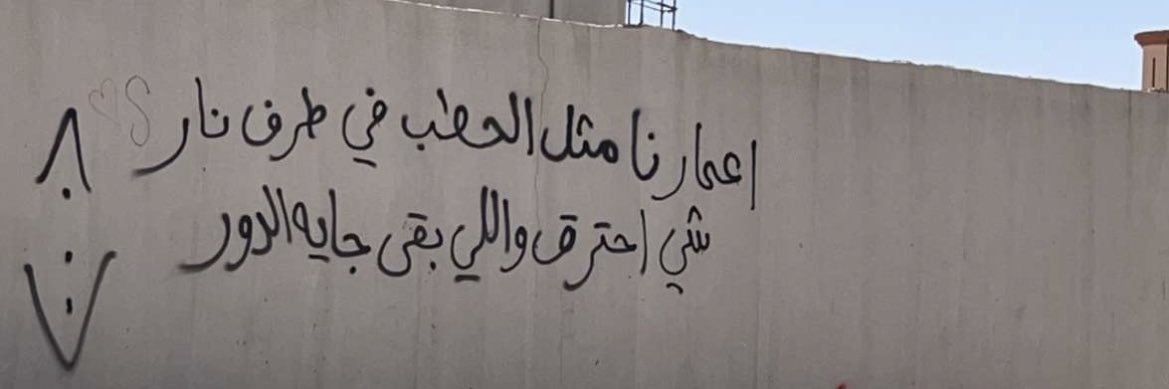 اعمارنا مثل الحطب في طرف نار
شي احترق واللي بقى جايه الدور
S